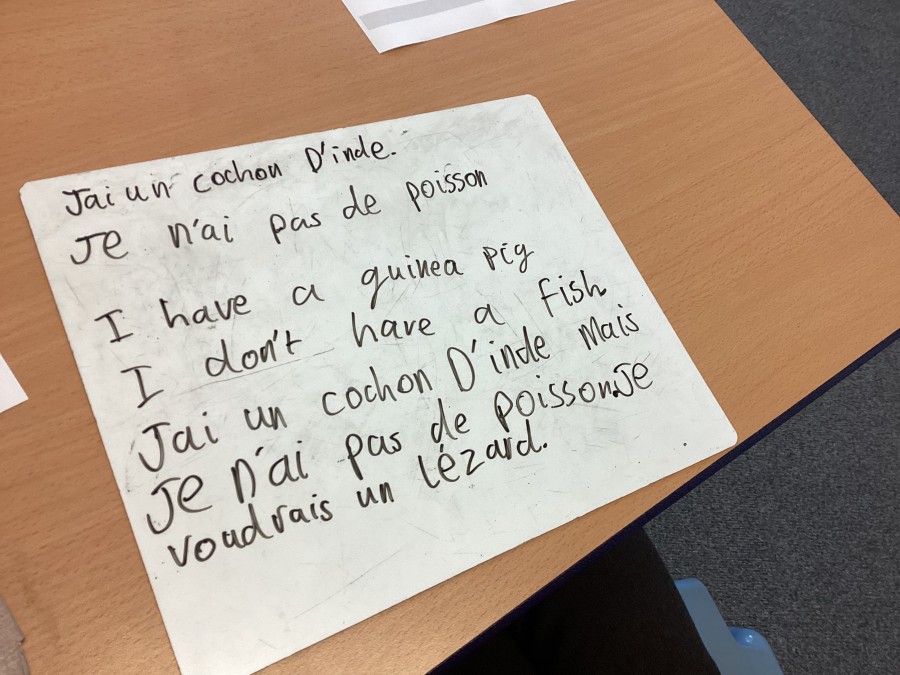 Jai un cochon D'inde.
Je n'ai pas de poisson
I have a guinea pig
I don't have a fish
Jai un cochon D'inde mais
Je n'ai pas de poisson. Je
voudrais un lézard.